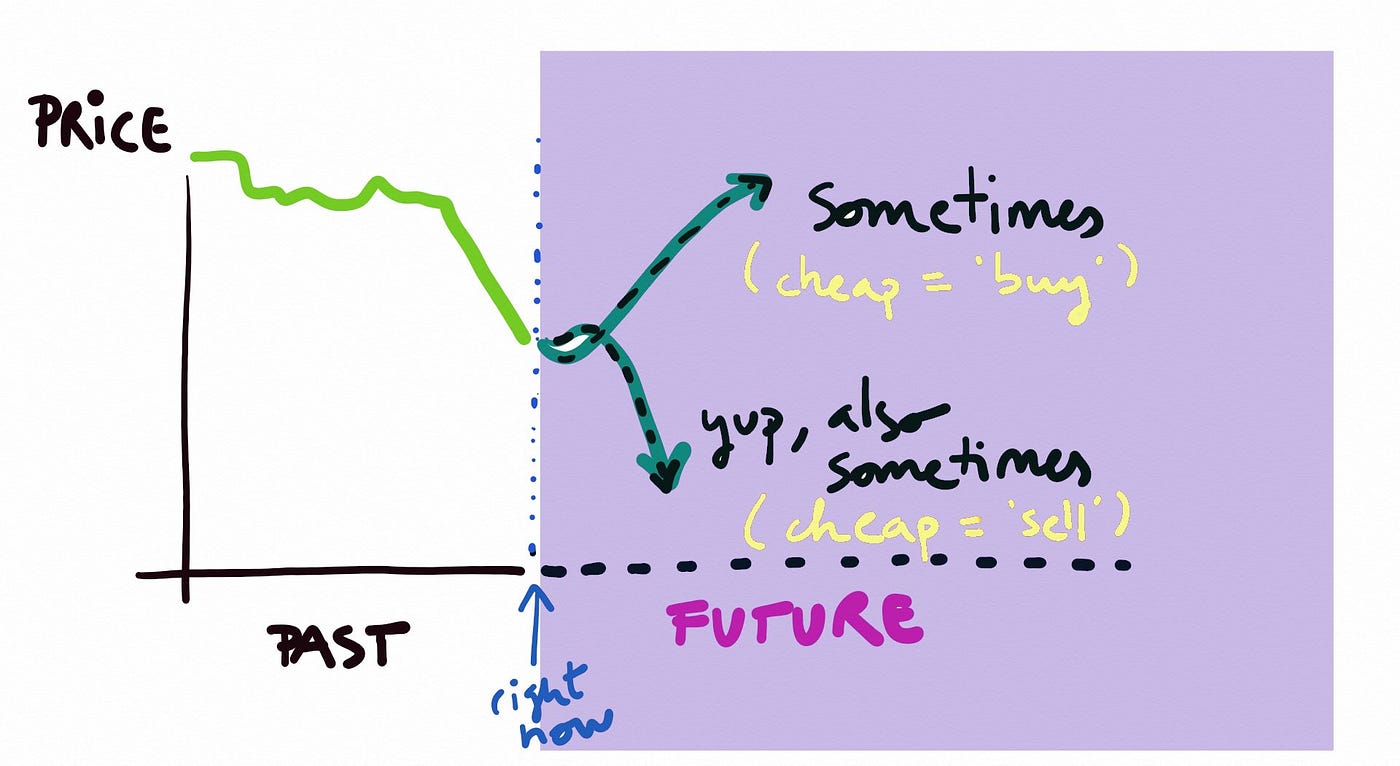 PRICE
sometimes
(cheap = 'buy')
yup, also
sometimes
(cheap = 'sell')
PAST
FUTURE
right
now